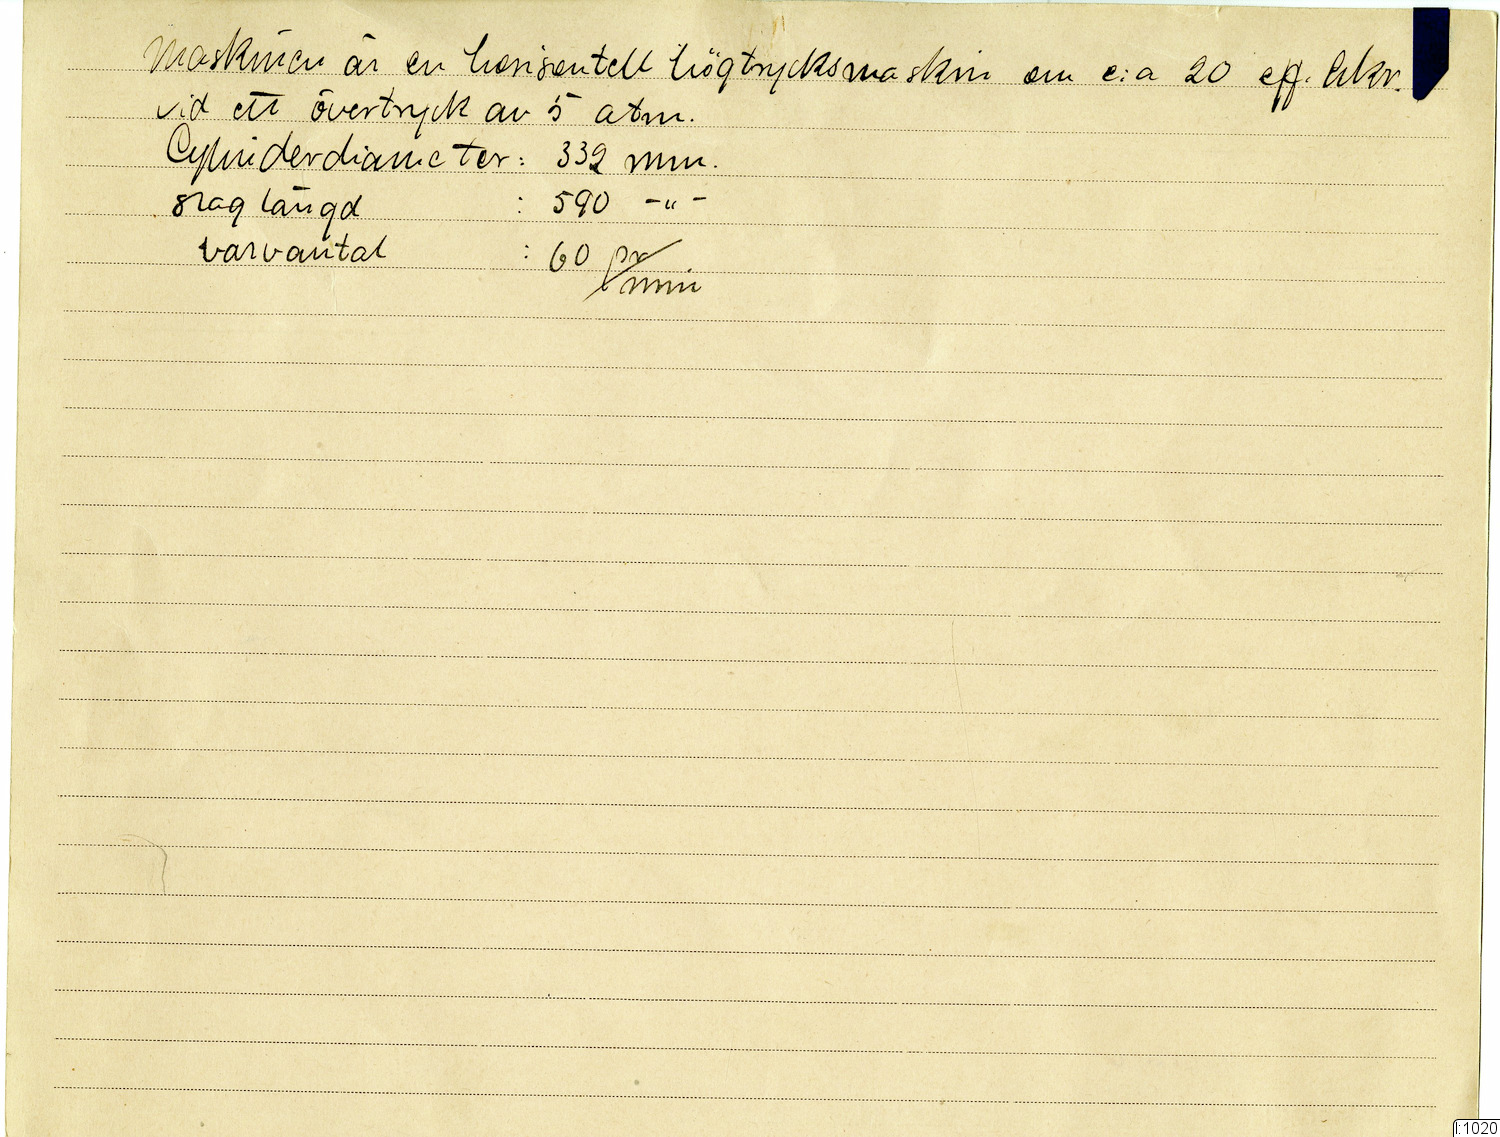 Maskinen är en horisontell högtrycksmaskin om c:a 20 eff. hkr.
vid ett övertryck av 5 atm.
Cylinderdiameter: 332 mm.
slaglängd : 590 -"-
varvantal : 60 pr/min
I:1020